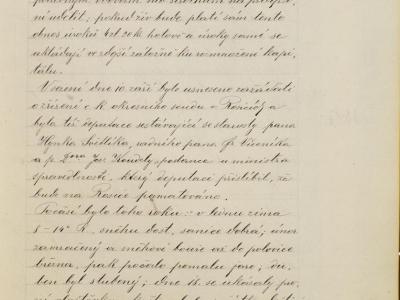 ní udělil; pokud živ bude platí sám tento
obnos úroků 4 zl. 20 k. hotově a úroky samé se
ukládají ve zdejší záložně ku rozmnožení kapi-
tálu.
V sezení dne 10 září bylo usneseno zažádati
o zřízení c. k. okresního soudu v Rosicích a
byla též deputace sestávající ze starosty pana
Hynka Světlíka, radního pana Fr.
a p. Dra Jos. poslance u ministra
spravedlnosti, který deputaci přislíbil, že
bude na Rosice pamatováno.
Počasí bylo toho roku: v lednu zima
8–14° R. sněhu dost, sanice dobrá; únor
zamračený a sněhové bouře až do polovice
března, pak počalo pomalu jaro; du-
ben byl studený; dne 18. se ukázaly po